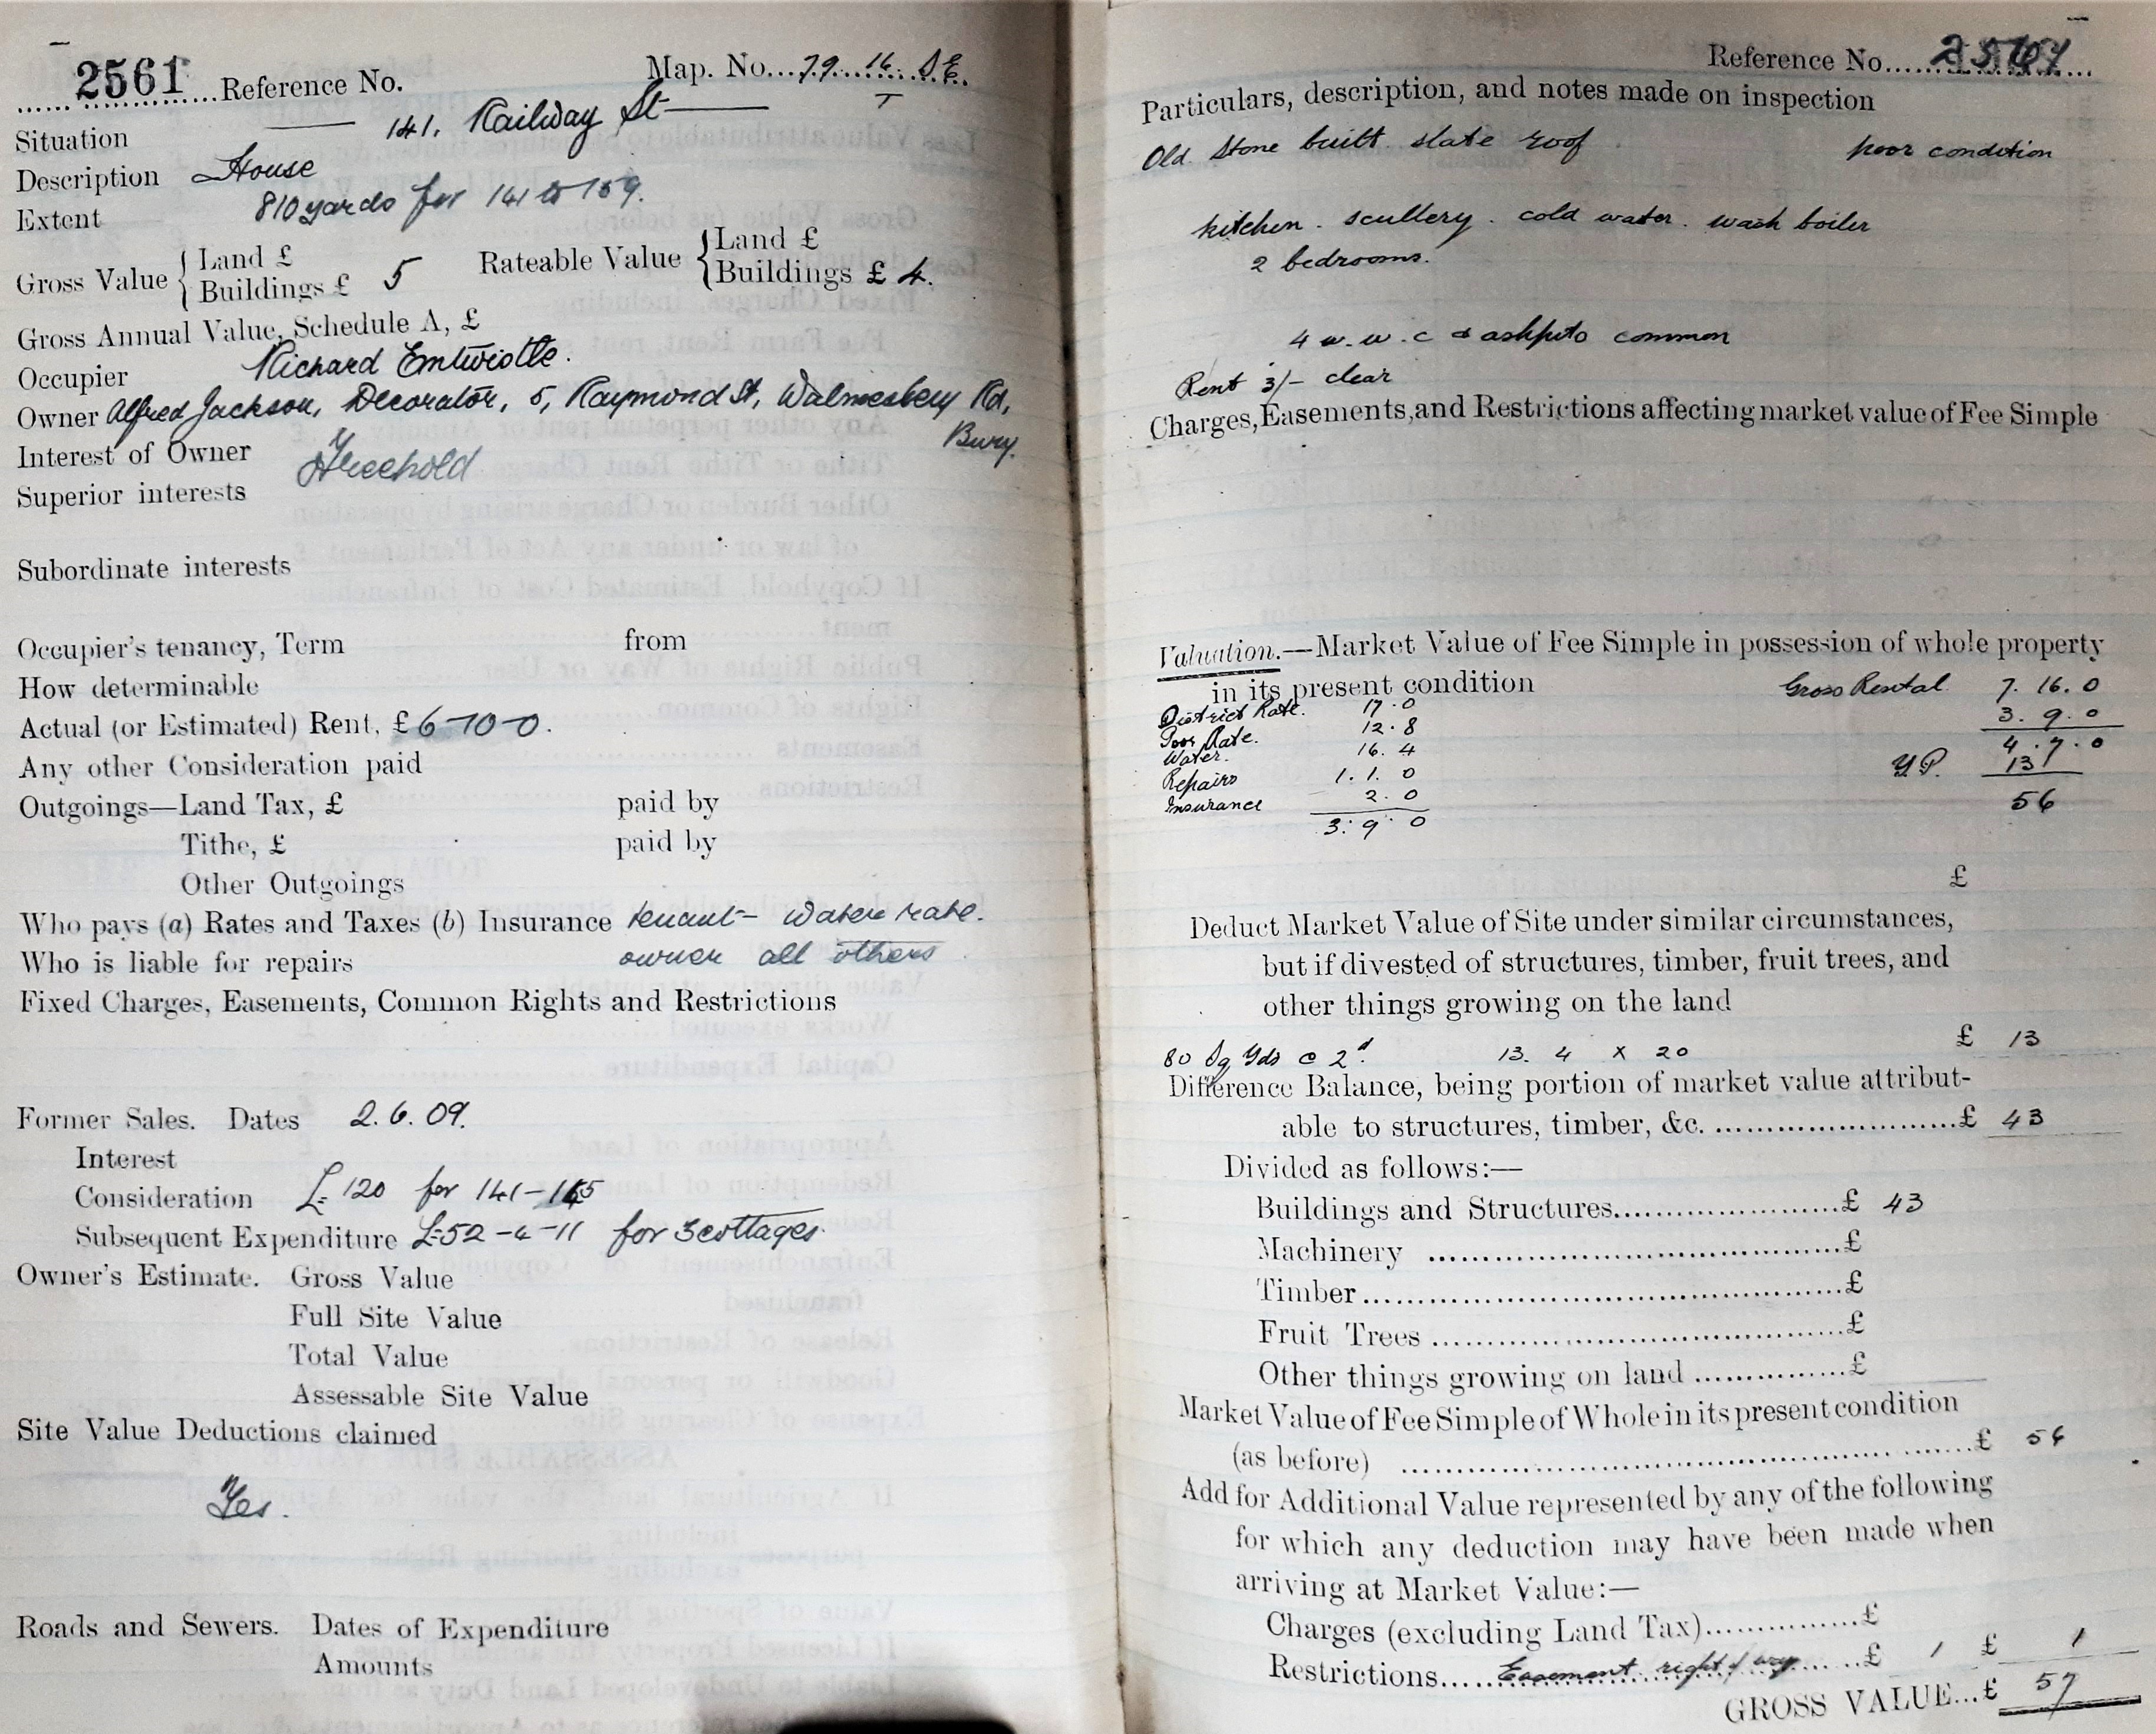 2561 Reference No. Map. No. 79. 16. S.E.
T
Situation 141, Railway St
Description House
Extent 810 yards for 141 to 159.
Gross Value { Land £ Rateable Value { Land £
Buildings £ 5 Buildings £ 4.
Gross Annual Value, Schedule A, £
Occupier Richard Entwistle.
Owner Alfred Jackson, Decorator, 5, Raymond St, Walmesbery Rd,
Bury.
Interest of Owner Freehold
Superior interests
Subordinate interests
Occupier's tenancy, Term from
How determinable
Actual (or Estimated) Rent, £ 6-10-0.
Any other Consideration paid
Outgoings—Land Tax, £ paid by
Tithe, £ paid by
Other Outgoings
Who pays (a) Rates and Taxes (b) Insurance tenant - water rate.
Who is liable for repairs owner all others
Fixed Charges, Easements, Common Rights and Restrictions
Former Sales. Dates 2.6.09.
Interest
Consideration £120 for 141-145
Subsequent Expenditure £52-4-11 for 3 cottages.
Owner's Estimate. Gross Value
Full Site Value
Total Value
Assessable Site Value
Site Value Deductions claimed
Yes.
Roads and Sewers. Dates of Expenditure
Amounts
Reference No. 2561
Particulars, description, and notes made on inspection
Old Stone built slate roof poor condition
kitchen. scullery. cold water. wash boiler
2 bedrooms.
4 w.w.c & ashpits common
Rent 3/- clear
Charges, Easements, and Restrictions affecting market value of Fee Simple
Valuation.—Market Value of Fee Simple in possession of whole property
in its present condition Gross Rental 7. 16. 0
District Rate. 17. 0 3. 9. 0
Poor Rate. 12. 8 4. 7. 0
Water. 16. 4 Y.P. 13
Repairs 1. 1. 0
Insurance 2. 0 56
3. 9. 0
£
Deduct Market Value of Site under similar circumstances,
but if divested of structures, timber, fruit trees, and
other things growing on the land
80 Sq Yds @ 2d. 13. 4 x 20 £ 13
Difference Balance, being portion of market value attribut-
able to structures, timber, &c. £ 43
Divided as follows:—
Buildings and Structures £ 43
Machinery £
Timber £
Fruit Trees £
Other things growing on land £
Market Value of Fee Simple of Whole in its present condition
(as before) £ 56
Add for Additional Value represented by any of the following
for which any deduction may have been made when
arriving at Market Value:—
Charges (excluding Land Tax) £
Restrictions Easement right of way £ 1 £ 1
GROSS VALUE £ 57